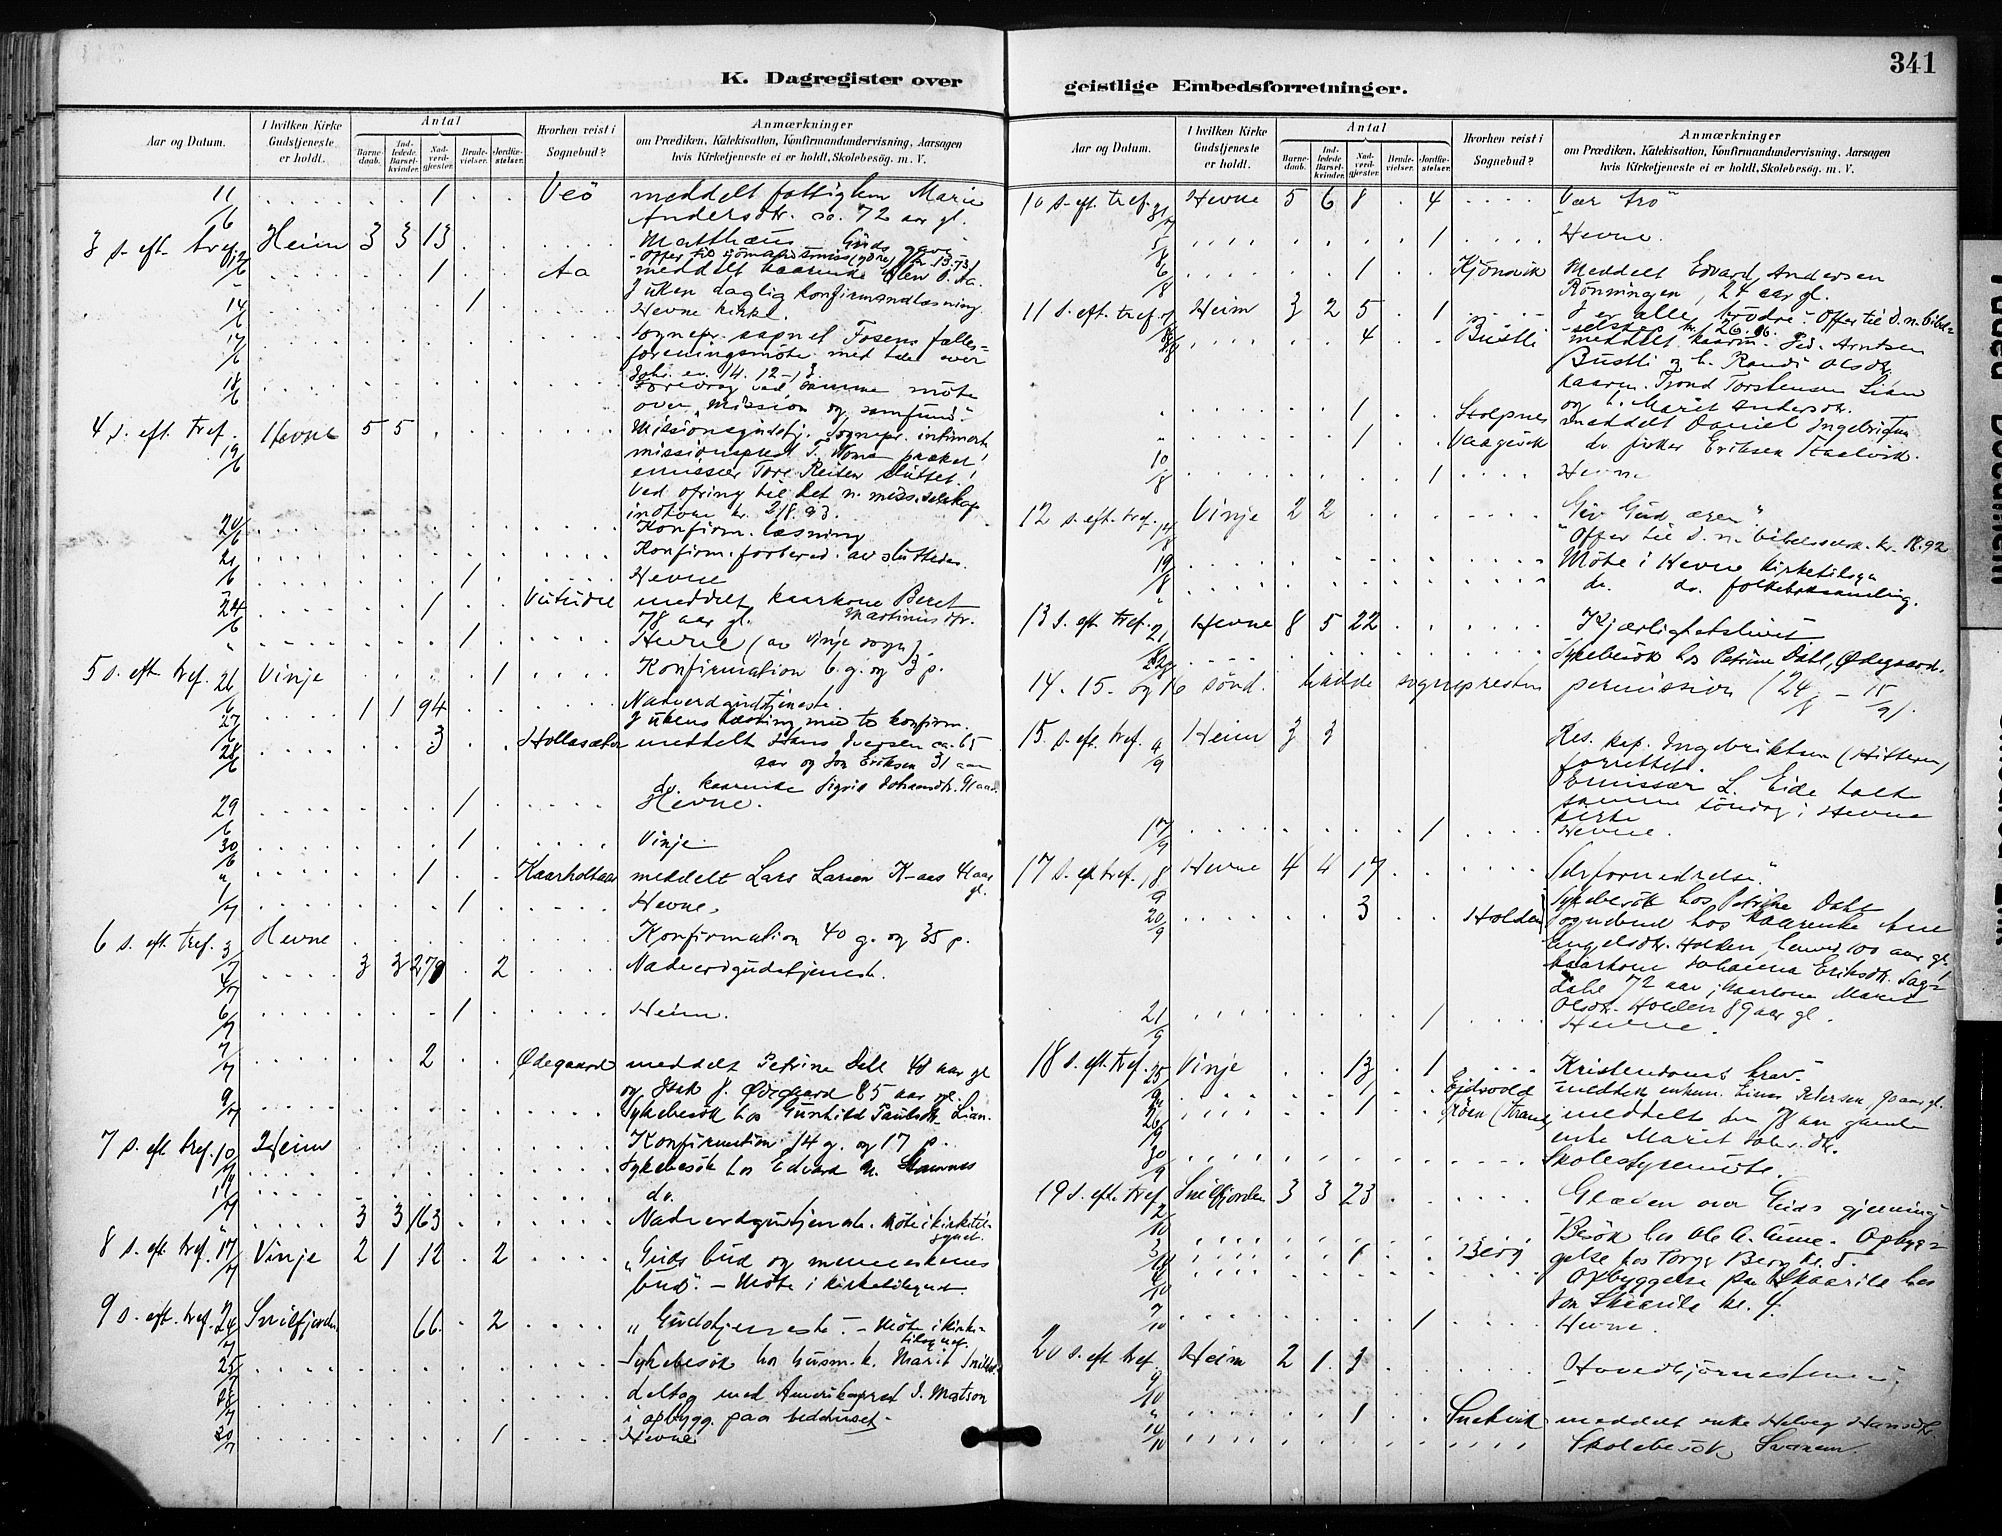 341
K. Dagregister over
geistlige Embedsforretninger.
Aar og Datum.
I hvilken Kirke Gudstjeneste er holdt.
Antal
Barnedaab.
Indledede Barselkvinder.
Nadverdgjester.
Brudevielser.
Jordfæstelser.
Hvorhen reist i Sognebud?
Anmærkninger
om Prædiken, Katekisation, Konfirmandundervisning, Aarsagen
hvis Kirketjeneste ei er holdt, Skolebesøg. m. V.
11/6 1 Veö meddelt fattiglem Marie
Andersdtr. ca. 72 aar gl.
3 s. eft. tref. 12/6 Heim 3 3 13 Matthæus Guds gave
1 Aa meddelt kaarenke
I uken daglig konfirmandlæsning
14/6 1 Hevne kirke.
17/6 Sognepr. aapnet Fosens fælles-
foreningsmöte med tale over
Joh. ev. 14. 12-13
18/6 Foredrag ved samme möte
over "Mission og samfund"
4 s. eft. tref. 19/6 Hevne 5 5 Missionsgudstj. Sognepr. intimerte
emissær Tore Reiten sluttet!
Ved ofring til det n. miss.selskap
indkom kr. 218.93.
20/6 Konfirm. læsning
21/6 Konfirm.forbered. avsluttedes.
1 Hevne
24/6 1 meddelt kaarkone Beret
78 aar gl. Martinusdtr.
1 Hevne (av Vinje sogn).
5 s. eft. tref. 26/6 Vinje 1 Konfirmation 6 g. og 3 p.
27/6 1 1 94 Nadverdgudstjeneste.
28/6 3 Hollasæter meddelt Hans Iversen ca. 65
aar og Jon Eriksen 31 aar
do. kaarenke Sigrid Johansdtr. 91 aar.
29/6 1 Hevne.
30/6 1 Vinje
" 1 Kaarholtaas meddelt Lars Larsen K-aas 41 aar gl.
1/7 1 Hevne.
6 s. eft. tref. 3/7 Hevne Konfirmation 40 g. og 35 p.
4/7 3 3 279 2 Nadverdgudstjeneste.
6/7 1 Heim.
7/7 2 Ødegaard meddelt Petrine Dahl 41 aar gl
og Isak J. Ødegaard 85 aar gl.
9/7 Sykebesök hos Gunhild Paulsdtr. Lian.
7 s. eft. tref. 10/7 Heim Konfirmation 14 g. og 17 p.
Sykebesök hos Edvard
do.
3 3 163 Nadverdgudstjeneste. Möte i kirketil-
synet.
8 s. eft. tref. 17/7 Vinje 2 1 12 2 "Guds bud og menneskenes
bud". — Möte i kirketilsynet
9 s. eft. tref. 24/7 Snilfjorden 66 2 "Gudstjeneste". — Möte i kirke-
tilsynet
25/7 Sykebesök hos husm.k. Marit
28/7 deltog med Amerikaprest J. Matson
i opbygg. paa bedehuset.
30/7 1 Hevne
Aar og Datum.
I hvilken Kirke Gudstjeneste er holdt.
Antal
Barnedaab.
Indledede Barselkvinder.
Nadverdgjester.
Brudevielser.
Jordfæstelser.
Hvorhen reist i Sognebud?
Anmærkninger
om Prædiken, Katekisation, Konfirmandundervisning, Aarsagen
hvis Kirketjeneste ei er holdt, Skolebesøg. m. V.
10 s. eft. tref. 31/7 Hevne 5 6 8 4 "Vær tro"
5/8 1 Hevne.
6/8 1 Kjönsvik Meddelt Edvard Andersen
Rönningen, 24 aar gl.
11 s. eft. tref. Heim 3 2 5 1 I er alle brödre. Offer til d. n. bibel-
selskap kr. 26.06.
4 Bustli meddelt kaarm. Ped. Arntsen
Bustli og h. Randi Olsdtr.
kaarm. Trond Torstensen Lian
og h. Marit Andersdtr.
1 Stolpnes meddelt Daniel Ingebrigtsen
" 1 Vaagsvik do. fisker Eriksen
10/8 1 Hevne
12 s. eft. tref. 14/8 Vinje 2 2 "Giv Gud æren".
Offer til d. n. bibelselsk. kr. 18.92
19/8 Möte i Hevne kirketilsyn
do. do. folkeboksamling.
13 s. eft. tref. 21/8 Hevne 8 5 22 Kjærlighetslivet
22/8 Sykebesök hos Petrine Dahl, Ødegaard.
14. 15. og 16 sönd. hadde sognepresten permission (24/8 — 15/9).
15. s. eft. tref. 4/9 Heim 3 3 Res. kap. Ingebriktsen (Hitteren)
forrettet.
Emissær L. Eide talte
samme söndag i Hevne
kirke
17/9 1 Hevne.
17 s. ef tref. 18/9 Hevne 4 4 17 "Selvfornedrelse."
Sykebesök hos Petrine Dahl
20/9 3 Holden Sognebud hos kaarenke Ane
Engelsdtr. Holden, henved 100 aar gl.
kaarkone Johanna Eriksdtr. Sag-
dahl 72 aar, kaarkone Marit
Olsdtr. Holden 89 aar gl.
21/9 1 Hevne.
18 s. eft. tref. 25/9 Vinje 13 1 Kristendoms krav.
1 Eidsvold meddelt enkem. Einar Petersen 90 aar gl.
26/9 1 meddelt den 78 aar gamle
enke Marit
30/9 Skolestyremöte.
19 s. eft. tref. 2/10 Snilfjorden 3 3 23 Glæden over Guds gjerning
3/10 Besök hos Opbyg-
1 Berg gelse hos Torger Berg kl. 5.
Opbyggelse paa Skaarild hos
Jon Skaarild kl. 4.
7/10 1 Hevne.
20 s. eft. tref. 9/10 Heim 2 1 3 Hovedhjörnestenen
" 1 meddelt enke Hansdtr.
10/10 Skolebesök Svanem.